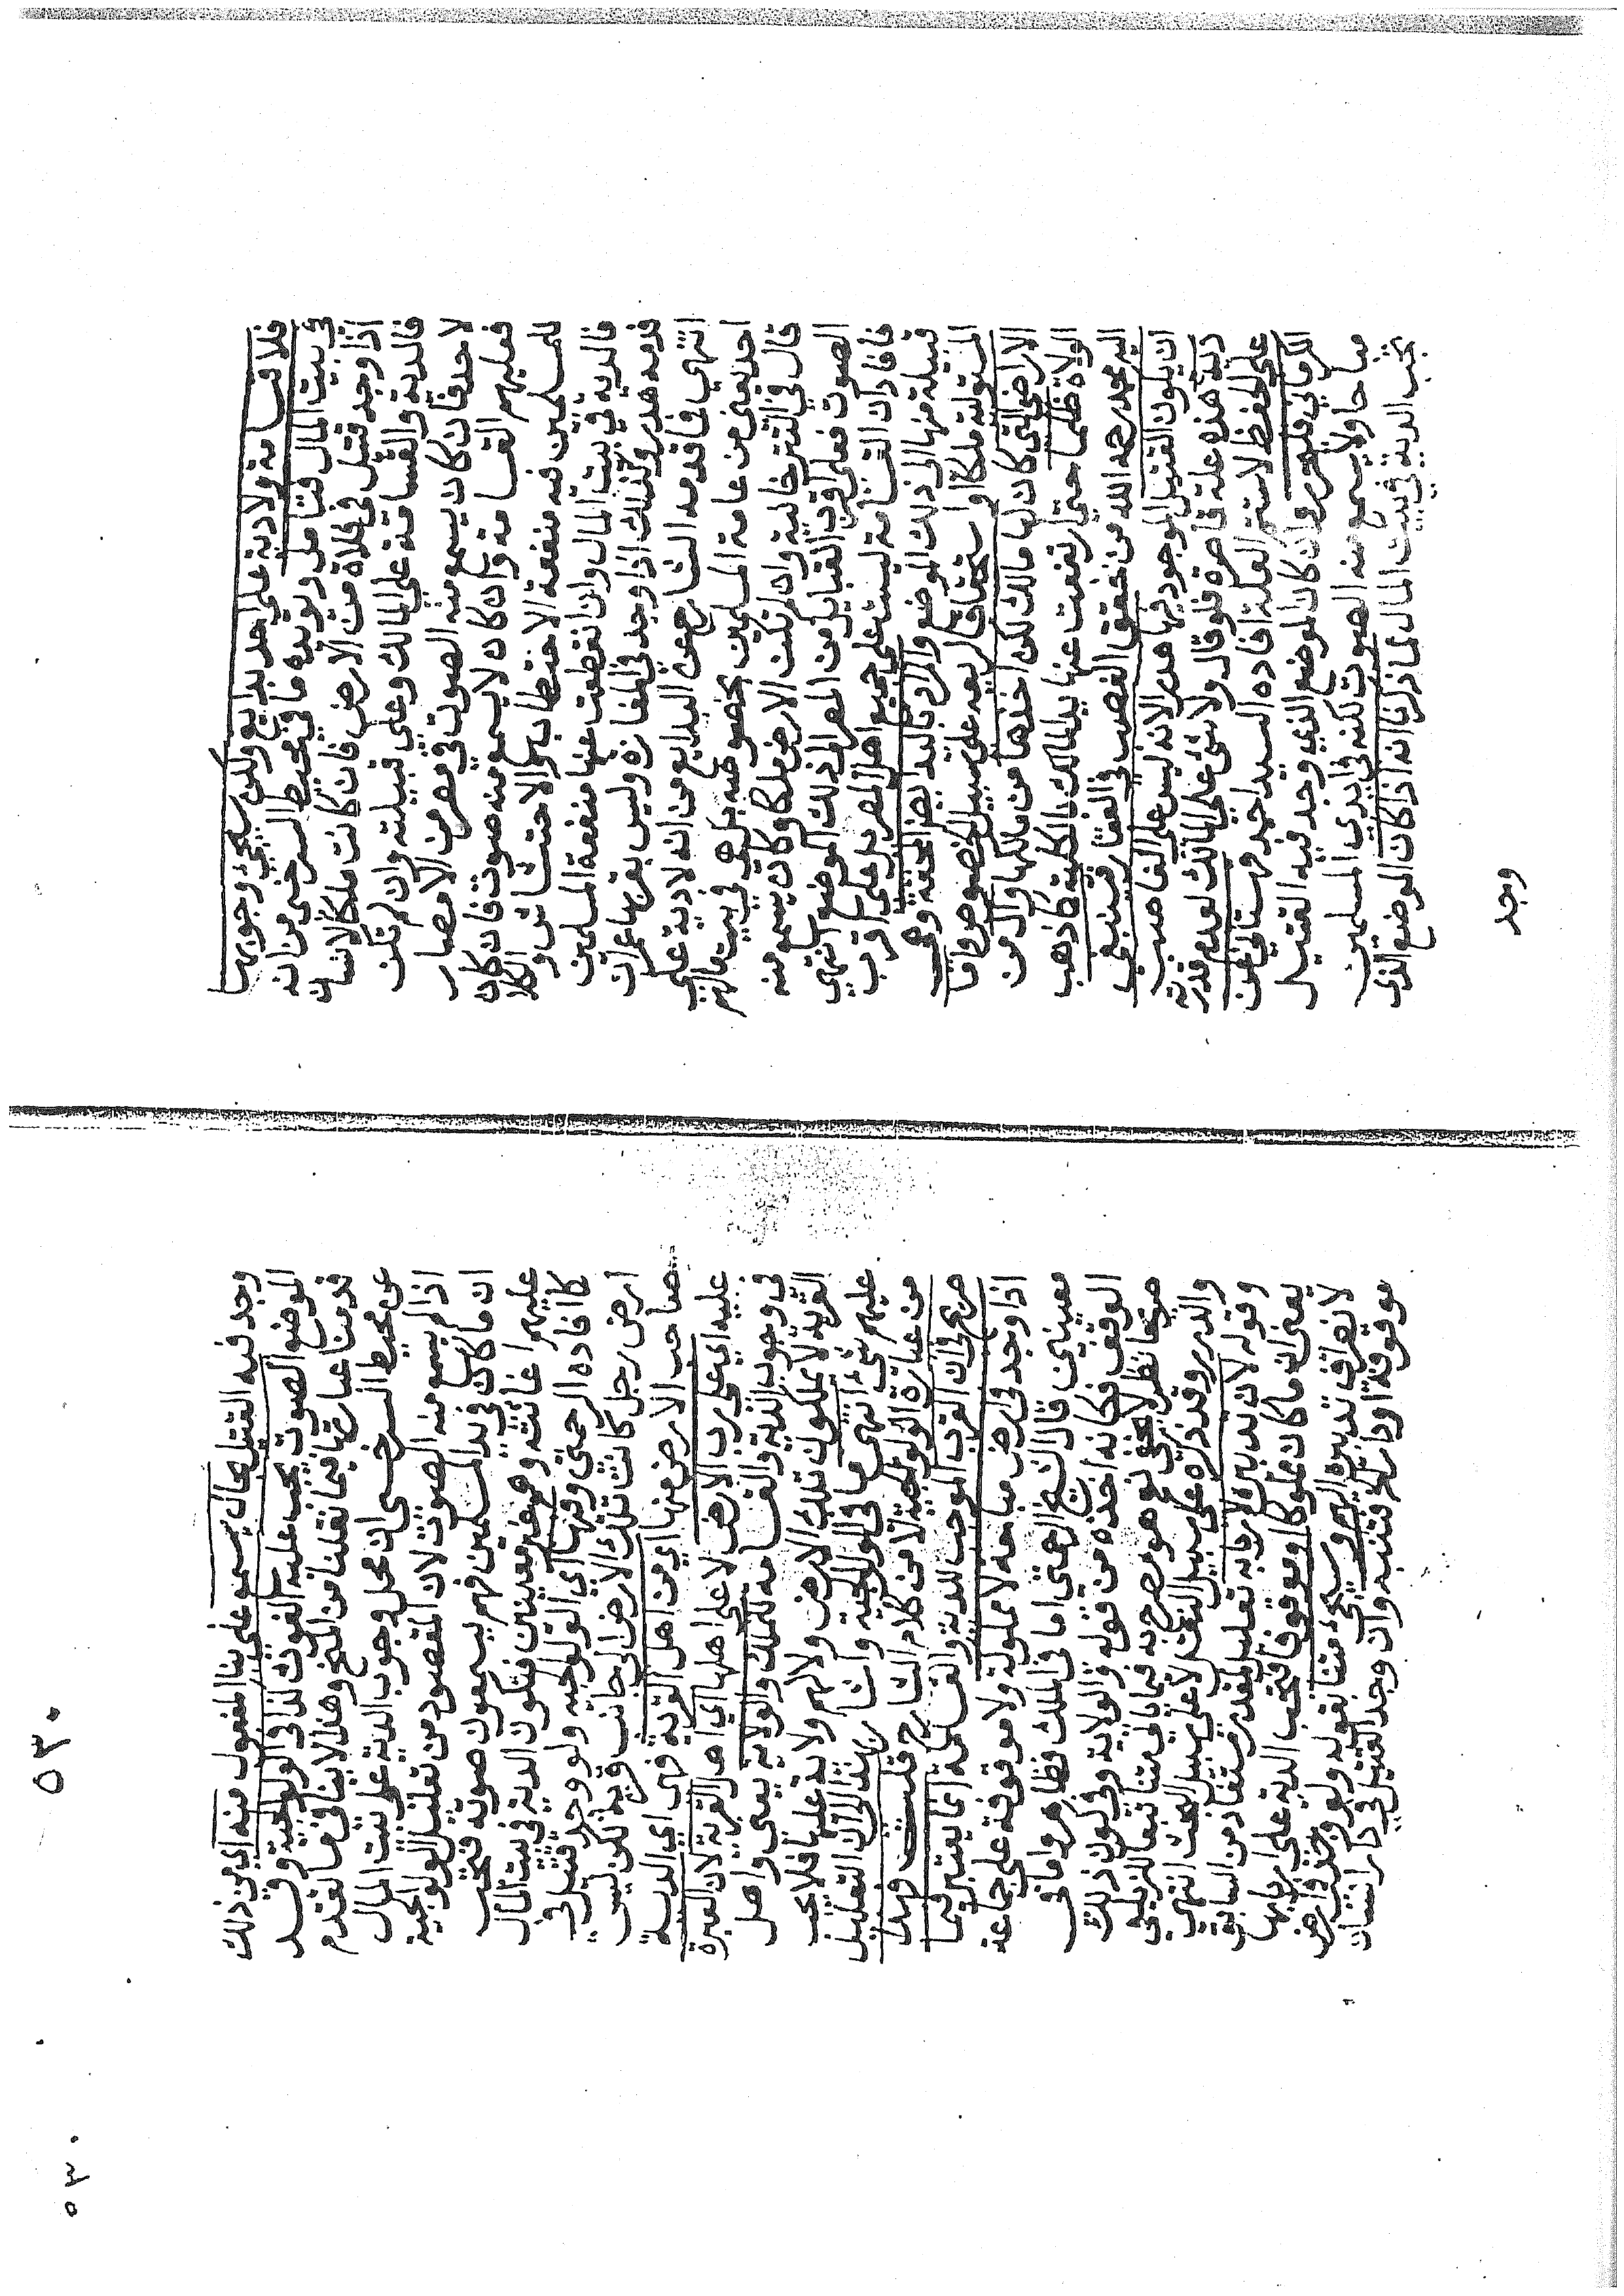 فلا قسامة ولا دية على احد بدايع ولكن سيجئ وجوبها
في بيت المال فتامل ويؤيده ما في محيط السرخسي من انه
اذا وجد قتيل في فلاة من الارض فان كانت ملكا لانسان
فالدية والقسامة على المالك وعلى قبيلته وان لم تكن
لاحد فان كان يسمع منه الصوت في مصر من الامصار
فعليهم القسامة وان كان لا يسمع منه صوت فان كان
للمسلمين فيه منفعة الاحتطاب والاحتشاش والكلا
فالدية في بيت المال وان انقطعت عنها منفعة المسلمين
فدمه هدر وكذلك اذا وجد في المفازة وليس بقربها عمران
انتهى فما قدمه الشارح عن البدايع من انه لا دية على
احد يعني من عامة المسلمين بخصوصه بل هي في بيت مالهم
قال في التتر خانية وان لم تكن الارض ملكا وكان يسمع منه
الصوت فعلى اقرب القبايل من المصر الى ذلك الموضع انتهى
فافاد ان القسامة ليست على جميع اهل المصر بل على اقرب
قبيلة منها الى ذلك الموضع والمراد باليد ايضا المحقة وهي
المستولية ملكا او استحقاقا لربعه على سبيل الخصوص واما
الاراضي التي كان لها مالك لكن اخذها من مالكها وال من
الولاة ظلما حتى ارتفعت عنها يد المالك بالكلية كما ذهب
اليه محمد رحمه الله من تحقق الغصب في العقار فينبغي
ان يكون القتيل الموجود فيها هدرا لانه ليس على الغاصب
دية هذه علة قاصرة فلو قال ولا شئ على المالك لعدم قدرته
على الحفظ لاستتم العلة افاده السيد احمد مهستاني عن
الكرماني فليحرر وان كان الموضع الذي وجد فيه القتيل
مباحا ولا يسمع منه الصوت لكنه في ايدي المسلمين
تجب الدية في بيت المال لما ذكرنا انه اذا كان الموضع الذي
وجد
وجد فيه القتيل بحال يسمع على بنا المفعول منه اي من ذلك
الموضع الصوت يجب عليه الغوث كذا في الولوالجية وقد
قدمنا عبارتها فيما نقلنا من المنح وهذا لا ينافي ما تقدم
عن محيط السرخسي ان محل وجوب الدية على بيت المال
اذا لم يسمع منه الصوت لان المقصود من تعليل الولوالجية
ان ما كان في يد المسلمين فهم يسمعون صوته فتجب
عليهم اغاثته وهم غير معينين فتكون الدية في بيت المال
كما افاده الرحمتي وفيها اي الولوالجية ولو وجد قتيل في
ارض رجل كانت تلك الارض الى جانب قرية لكن ليس
صاحب الارض منها اي من اهل القرية فهي اي الدية
عليه اي على رب الارض لا على اهلها اي اهل القرية لان العبرة
في وجوب الدية والقسامة للملك والولاية يعني واهل
القرية لا يملكون تلك الارض ولا لهم ولاية عليها فلا يجب
عليهم شئ انتهى ما في الولوالجية واشار بهذا الى ان التعليل
من عبارة الولوالجية لا من كلام الشارح قلت وهذا
صريح في ان القرب الموجب للدية والقسامة انما يعتبر فيما
اذا وجد في ارض مباحة لا مملوكة ولا موقوفة على جماعة
معينين قال الشيخ الرحمتي اما في الملك فظاهر واما في
الوقف فكانه اخذه من قوله والولاية وفي كون ذلك
صريحا نظر لا يخفى نعم هو مصرح به فيما ياتي متنا تبعا للزيلعي
والدرر وقد ذكره على سبيل النقل لا على سبيل البحث انتهى
وقوله لان تدبيره لاربابه تعليل لمقدر مستفاد من السابق
يعني ان ما كان مملوكا او موقوفا فتجب الدية على اربابها
لانصراف تدبيره اليهم وسيجئ متنا بقوله ولو وجد في ارض
موقوفة او دار كذلك فتنبه وان وجد القتيل في دار انسان
٥٣٠
٥٣٠